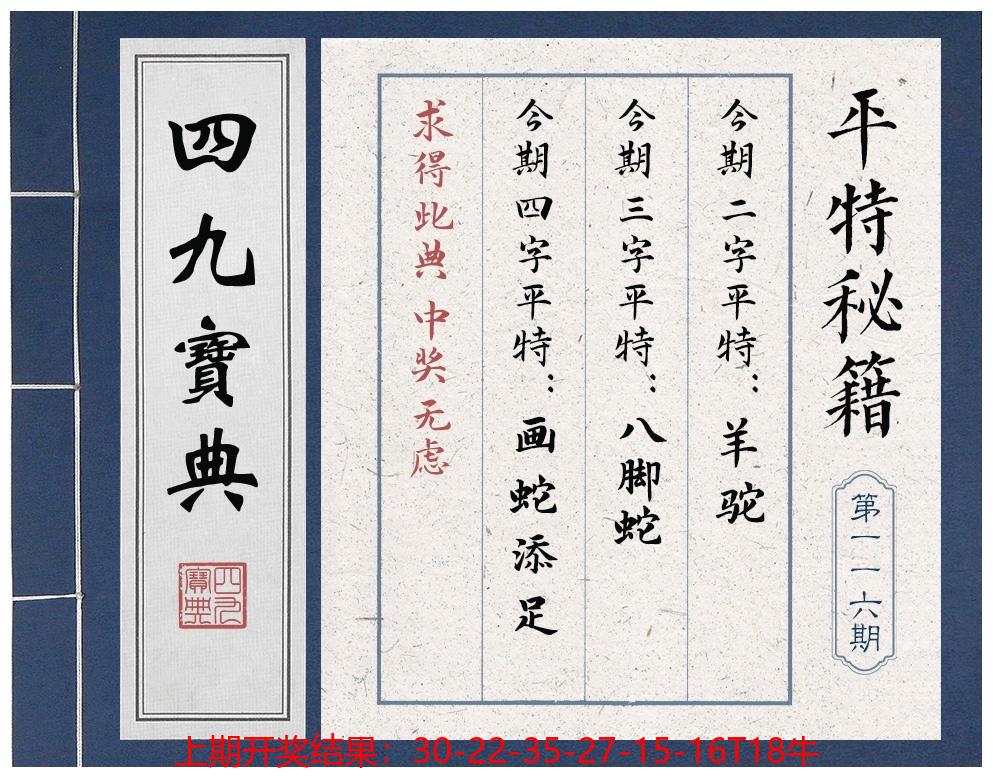 四九寶典
四九寶典
平特秘籍
第一一六期
今期二字平特：羊驼
今期三字平特：八脚蛇
今期四字平特：画蛇添足
求得此典 中奖无虑
上期开奖结果：30-22-35-27-15-16T18牛